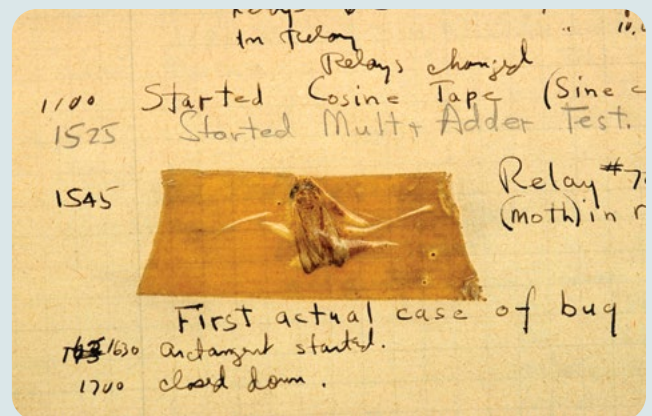 In Relay
Relays changed
1100 Started Cosine Tape (Sine
1525 Started Mult+ Adder Test.
1545 Relay #7
(moth) in
First actual case of bug
1630 arctangent started.
1700 closed down.